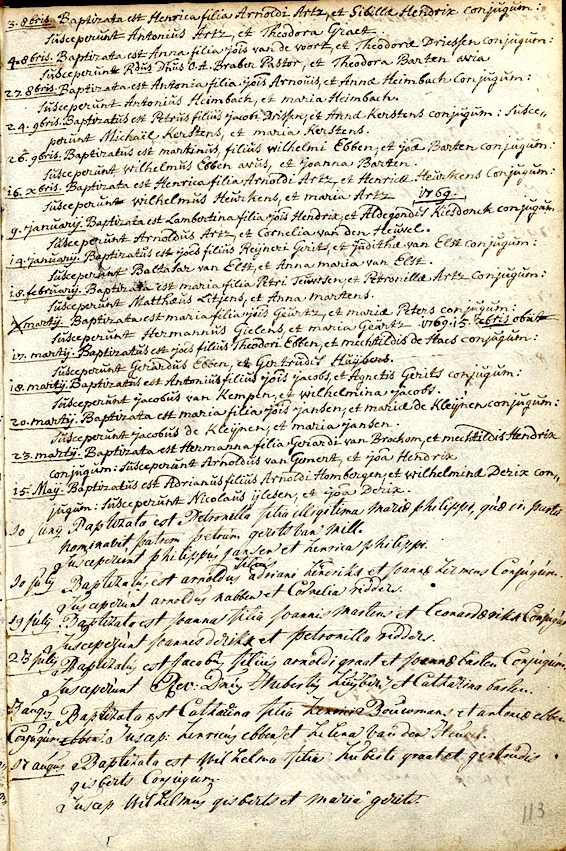 3. 8bris. Baptizata est Henrica filia Arnoldi Artz, et Sibillæ Hendrix conjugum:
Susceperunt Antonius Artz, et Theodora Graet.
4. 8bris. Baptizata est Anna filia jois van de voort, et Theodoræ Driessen conjugum:
Susceperunt Rdus Dnus O.A. Braber Pastor, et Theodora Barten avia
27. 8bris. Baptizata est Antonia filia jois Arnouts, et Annæ Heimbach Conjugum:
Susceperunt Antonius Heimbach, et maria Heimbach.
24. 9bris. Baptizatus est Petrus filius jacobi Drissen, et Annæ Kerstens conjugum: Susce„
perunt Michaïl Kerstens, et maria Kerstens.
26. 9bris. Baptizatus est martinus, filius wilhelmi Ebben, et joæ Barten conjugum:
Susceperunt wilhelmus Ebben avus, et joanna Barten.
16. xbris. Baptizata est Henrica filia Arnoldi Artz, et Henricæ Heurkens Conjugum:
Susceperunt wilhelmus Heurkens, et maria Artz 1769.
9. januarij. Baptizata est Lambertina filia jois Hendrix, et Aldegondis Kiesdonck conjugum
Susceperunt Arnoldus Artz, et Cornelia van den Heuvel.
14. januarij. Baptizatus est joes filius Reijneri Gerits, et judithæ van Elst conjugum:
Susceperunt Baltasar van Elst, et Anna maria van Elst.
18. februarij. Baptizata est maria filia Petri Teuwsen, et Petronillæ Artz conjugum:
Susceperunt Matthæus Litjens, et Anna martens.
martij. Baptizata est maria filia jois Geurtz, et mariæ Peters conjugum:
Susceperunt Hermannus Gielens, et maria Geurtz 1769. 15 xbris obiit
17. martij. Baptizatus est joes filius Theodori Ebben, et mechtildis de Haes conjugum:
Susceperunt Gerardus Ebben, et Gertrudis Huijbens.
18. martij. Baptizatus est Antonius filius jois jacobs, et Agnetis Gerits conjugum:
Susceperunt jacobus van Kempen, et wilhelmina jacobs.
20. martij. Baptizata est maria filia jois jansen, et mariæ de Kleijnen conjugum:
Susceperunt jacobus de Kleijnen, et maria jansen.
23. martij. Baptizata est Hermanna filia Gerardi van Brockom, et mechtildis Hendrix
conjugum: Susceperunt Arnoldus van Gemert, et joa Hendrix
15. May. Baptizatus est Adrianus filius Arnoldi Hombergen, et wilhelminæ Derix con„
jugum: Susceperunt Nicolaus ijlesen, et joa Derix.
10 junij Baptizata est Petronilla filia illegitima Mariæ philippi, quæ in partu
nominavit patrem petrum gerits van Mill.
Susceperunt philippus jansen et henrica philippi.
filius
10 july Baptizatus est arnoldus adriani hendriks et joannæ hermens Conjugum.
Susceperunt arnoldus nabben et Cornelia ridders.
19 july Baptizata est joanna filia joannis martens et leonardæ Conjugum
Susceperunt joannes deriks et petronilla ridders.
23 july Baptizatus est jacobus filius arnoldi graat et joannæ basten Conjugum,
Susceperunt Rev. Dnus Hubertus huijbers et Catharina basten.
augus Baptizata est Catharina filia Bouwmans et antoniæ ebben
Conjugum Suscep: henricus ebben, et helena van den Heuvel.
augus Baptizata est Wilhelma filia huberti graat et gertrudis
gisberts Conjugum.
Suscep Wilhelmus gisberts et maria gerits.
113